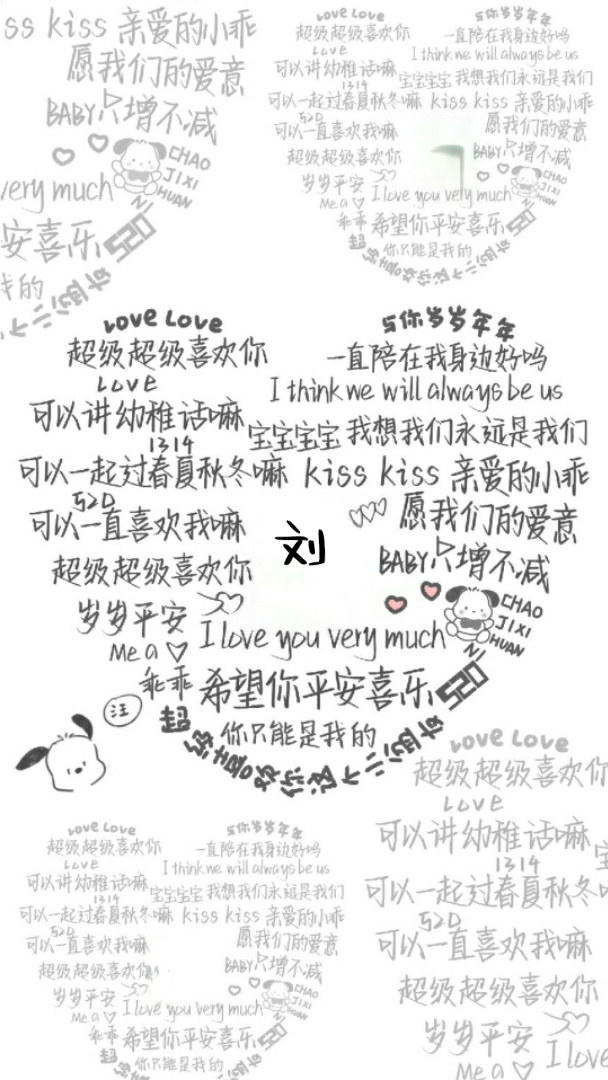 ss kiss 亲爱的小乖
愿我们的爱意
BABY只增不减
CHAO
JIXI
HUAN
NI
very much
安喜乐 520
我的
Love Love
与你岁岁年年
超级超级喜欢你
一直陪在我身边好吗
Love
I think we will always be us
可以讲幼稚话嘛
宝宝宝宝 我想我们永远是我们
1314
可以一起过春夏秋冬嘛 kiss kiss 亲爱的小乖
520
可以一直喜欢我嘛
愿我们的爱意
超级超级喜欢你
BABY只增不减
CHAO
JIXI
HUAN
NI
岁岁平安
I love you very much
Me a
乖乖 希望你平安喜乐 520
你只能是我的
Love Love
与你岁岁年年
超级超级喜欢你
一直陪在我身边好吗
Love
I think we will always be us
可以讲幼稚话嘛
宝宝宝宝 我想我们永远是我们
1314
可以一起过春夏秋冬嘛 kiss kiss 亲爱的小乖
520
可以一直喜欢我嘛
愿我们的爱意
刘
超级超级喜欢你
BABY只增不减
CHAO
JIXI
HUAN
NI
岁岁平安
I love you very much
Me a
乖乖 希望你平安喜乐 520
你只能是我的
汪
Love Love
超级超级喜欢你
Love
可以讲幼稚话嘛
宝
1314
可以一起过春夏秋冬
520
可以一直喜欢我嘛
超级超级喜欢你
岁岁平安
I love
Me a
Love Love
与你岁岁年年
超级超级喜欢你
一直陪在我身边好吗
Love
I think we will always be us
可以讲幼稚话嘛
宝宝宝宝 我想我们永远是我们
1314
可以一起过春夏秋冬嘛 kiss kiss 亲爱的小乖
520
可以一直喜欢我嘛
愿我们的爱意
超级超级喜欢你
BABY只增不减
CHAO
JIXI
HUAN
NI
岁岁平安
I love you very much
Me a
乖乖 希望你平安喜乐 520
你只能是我的